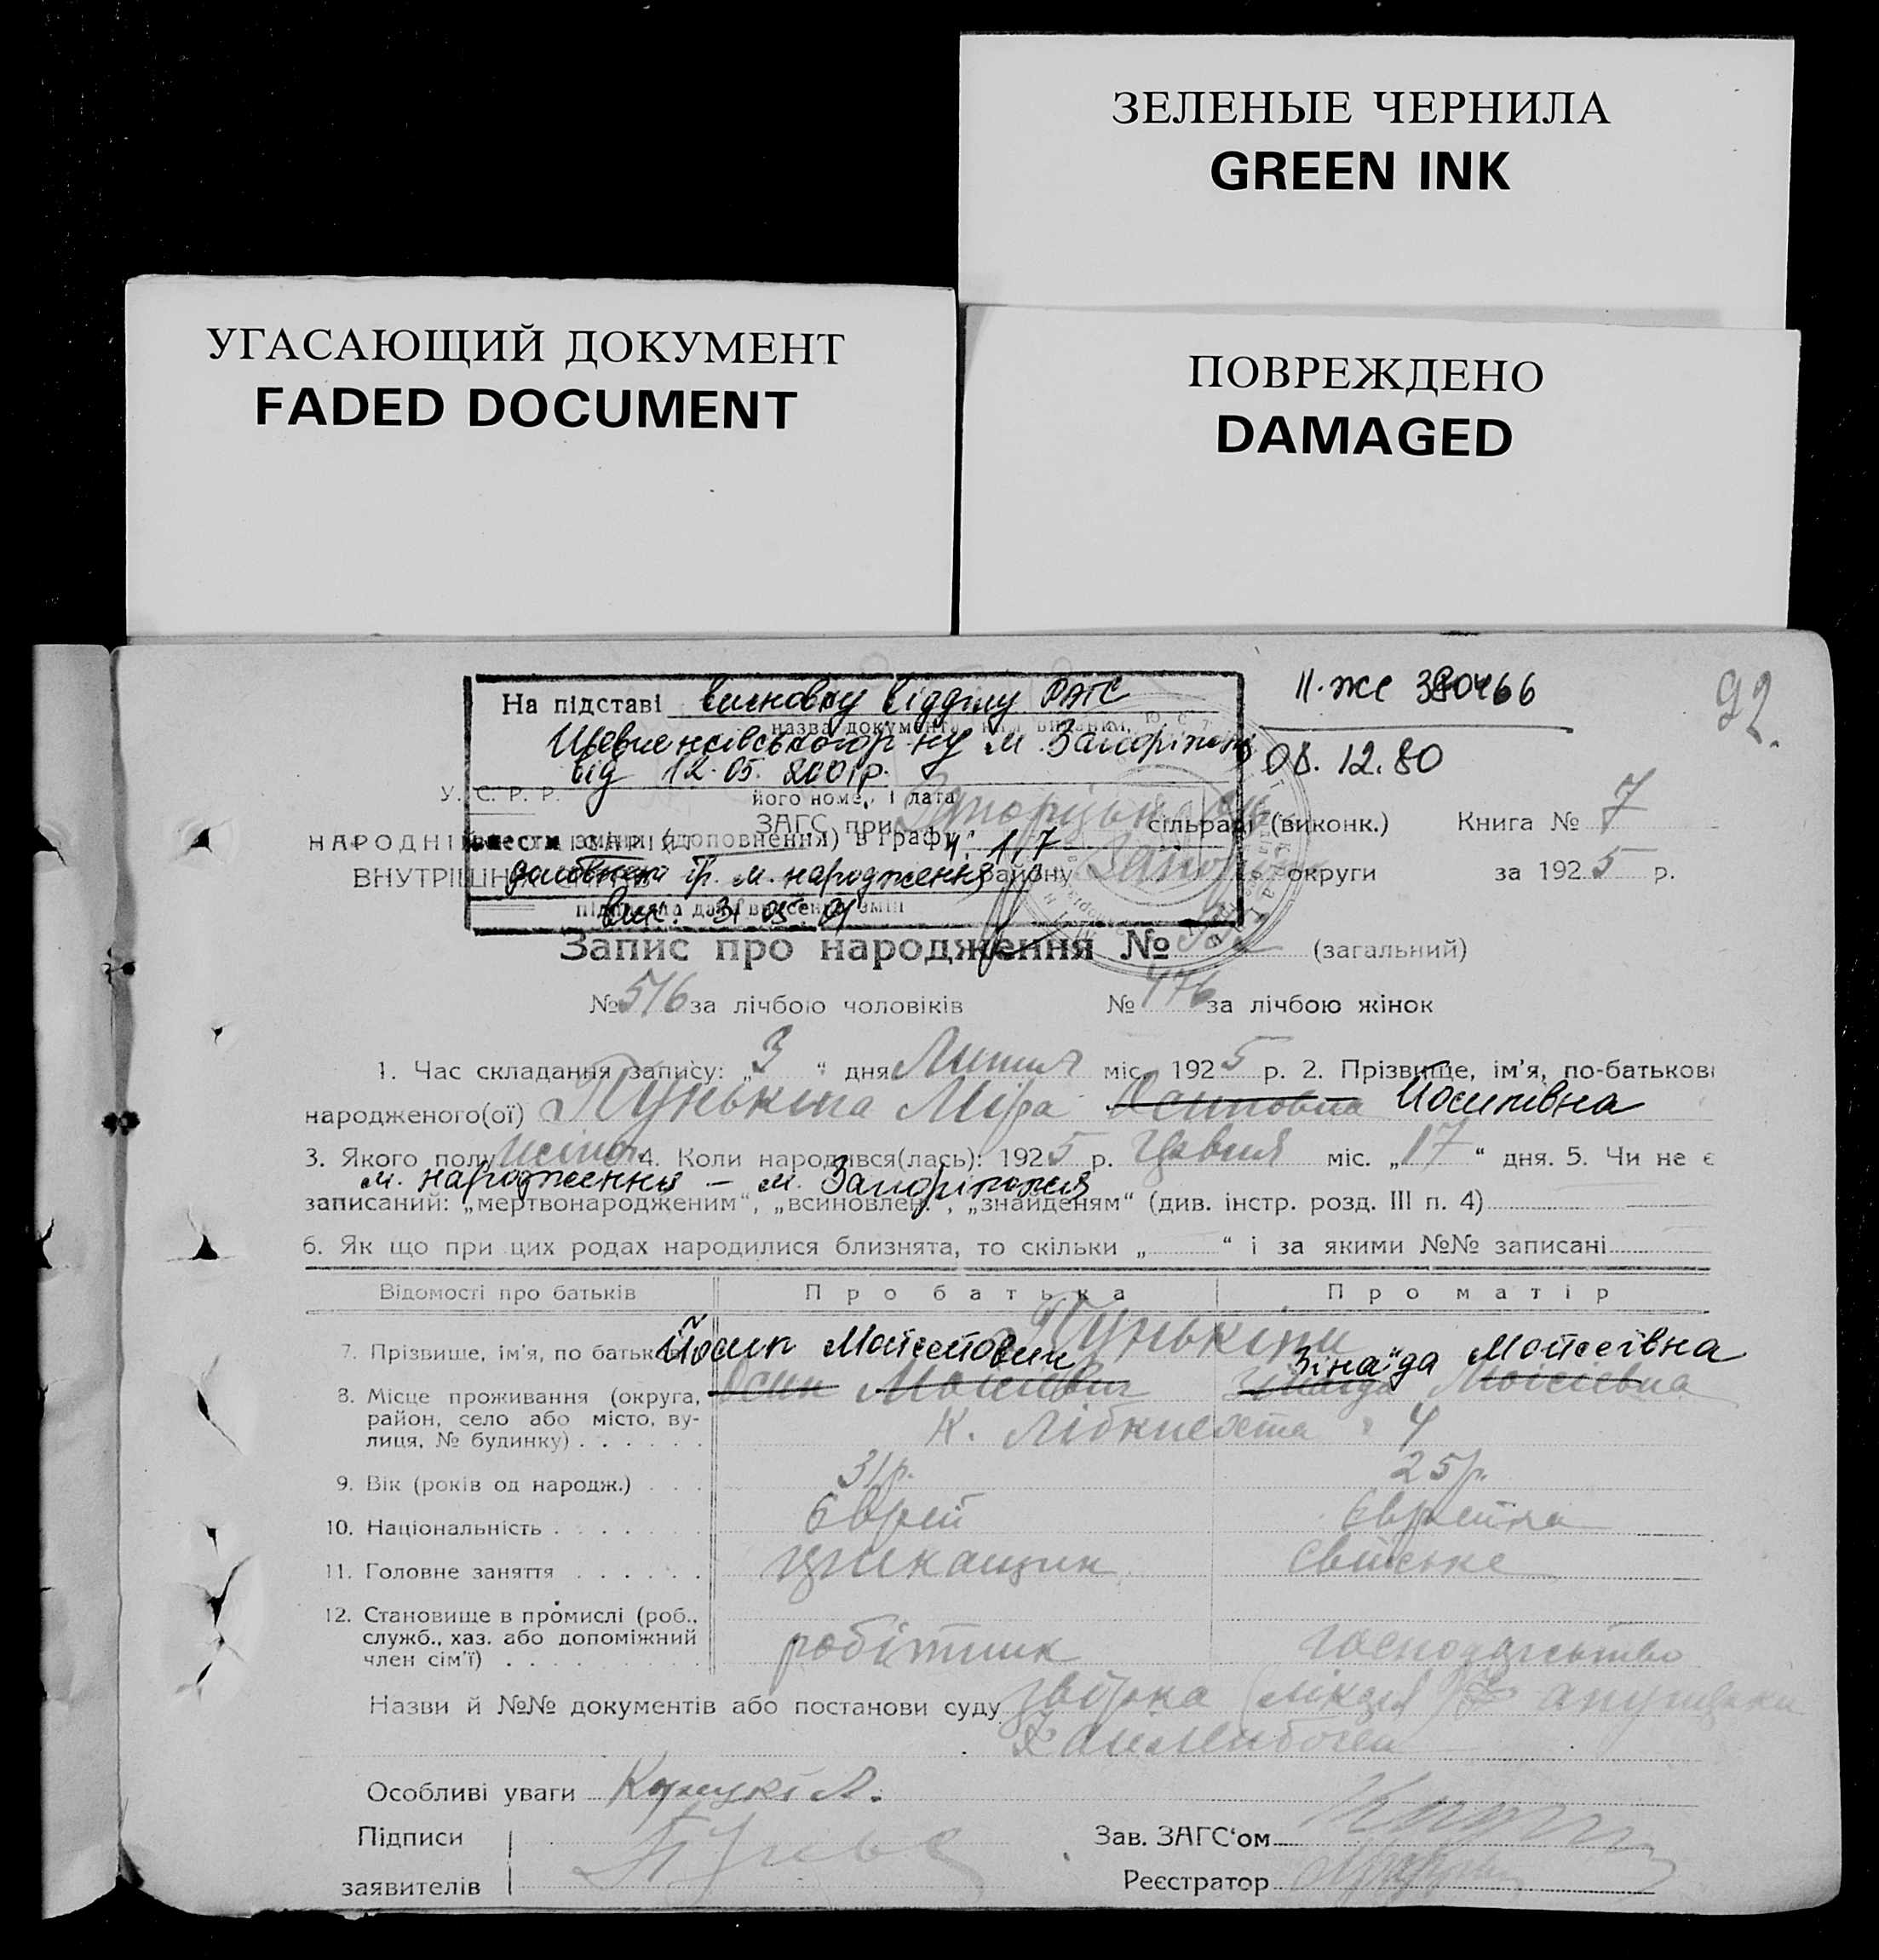 ЗЕЛЕНЫЕ ЧЕРНИЛА
GREEN INK
УГАСАЮЩИЙ ДОКУМЕНТ
FADED DOCUMENT
ПОВРЕЖДЕНО
DAMAGED
92.
На підставі висновку відділу РАГС
назва документа
Шевченківського р-ну м. Запоріжжя
від 12.05.2001р.
його номер і дата
внести зміни (доповнення) в графу 1, 7
м. народження
31 05 01
II-ЖС 380466
08.12.80
У. С. Р. Р.
ЗАГС при сільраді (виконк.) Книга № 7
НАРОДНІЙ
ВНУТРІШНІХ району округи за 1925 р.
Запис про народження № (загальний)
№ 516 за лічбою чоловіків № 476 за лічбою жінок
1. Час складання запису: „3“ дня Липня міс. 1925 р. 2. Прізвище, ім'я, по-батькові
народженого(ої) Пунькіна Міра Осиповна Йосипівна
3. Якого полу 4. Коли народився(лась): 1925 р. Червня міс. „17“ дня. 5. Чи не є
м. народження – м. Запоріжжя
записаний: „мертвонародженим“, „всиновлен.“, „знайденям“ (див. інстр. розд. III п. 4)
6. Як що при цих родах народилися близнята, то скільки „ “ і за якими №№ записані
Відомості про батьків Про батька Про матір
Пунькіни
7. Прізвище, ім'я, по батьков. Йосип Мойсейович Зінаїда Мойсеївна
Осип Моисеевич Зинаїда Моісієвна
8. Місце проживання (округа, район, село або місто, вулиця, № будинку) К. Лібкнехта 4
9. Вік (років од народж.) 31р. 25р.
10. Національність Єврей Єврейка
11. Головне заняття Свійське
12. Становище в промислі (роб., служб., хаз. або допоміжний член сім'ї) робітник господарство
Назви й №№ документів або постанови суду
Особливі уваги
Підписи
заявителів
Зав. ЗАГС'ом
Реєстратор